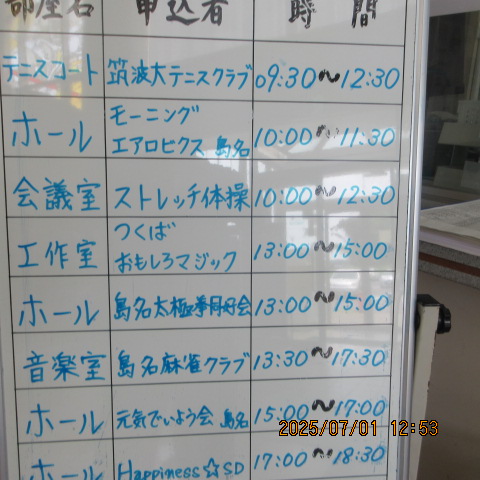 部屋名 申込者 時間
テニスコート 筑波大テニスクラブ 09:30〜12:30
ホール モーニング
エアロビクス 島名 10:00〜11:30
会議室 ストレッチ体操 10:00〜12:30
工作室 つくば
おもしろマジック 13:00〜15:00
ホール 島名太極拳同好会 13:00〜15:00
音楽室 島名麻雀クラブ 13:30〜17:30
ホール 元気でいよう会 島名 15:00〜17:00
2025/07/01 12:53
ホール Happiness☆SD 17:00〜18:30